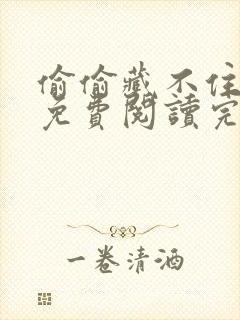 偷偷藏不住
免費閱讀完
一卷清酒